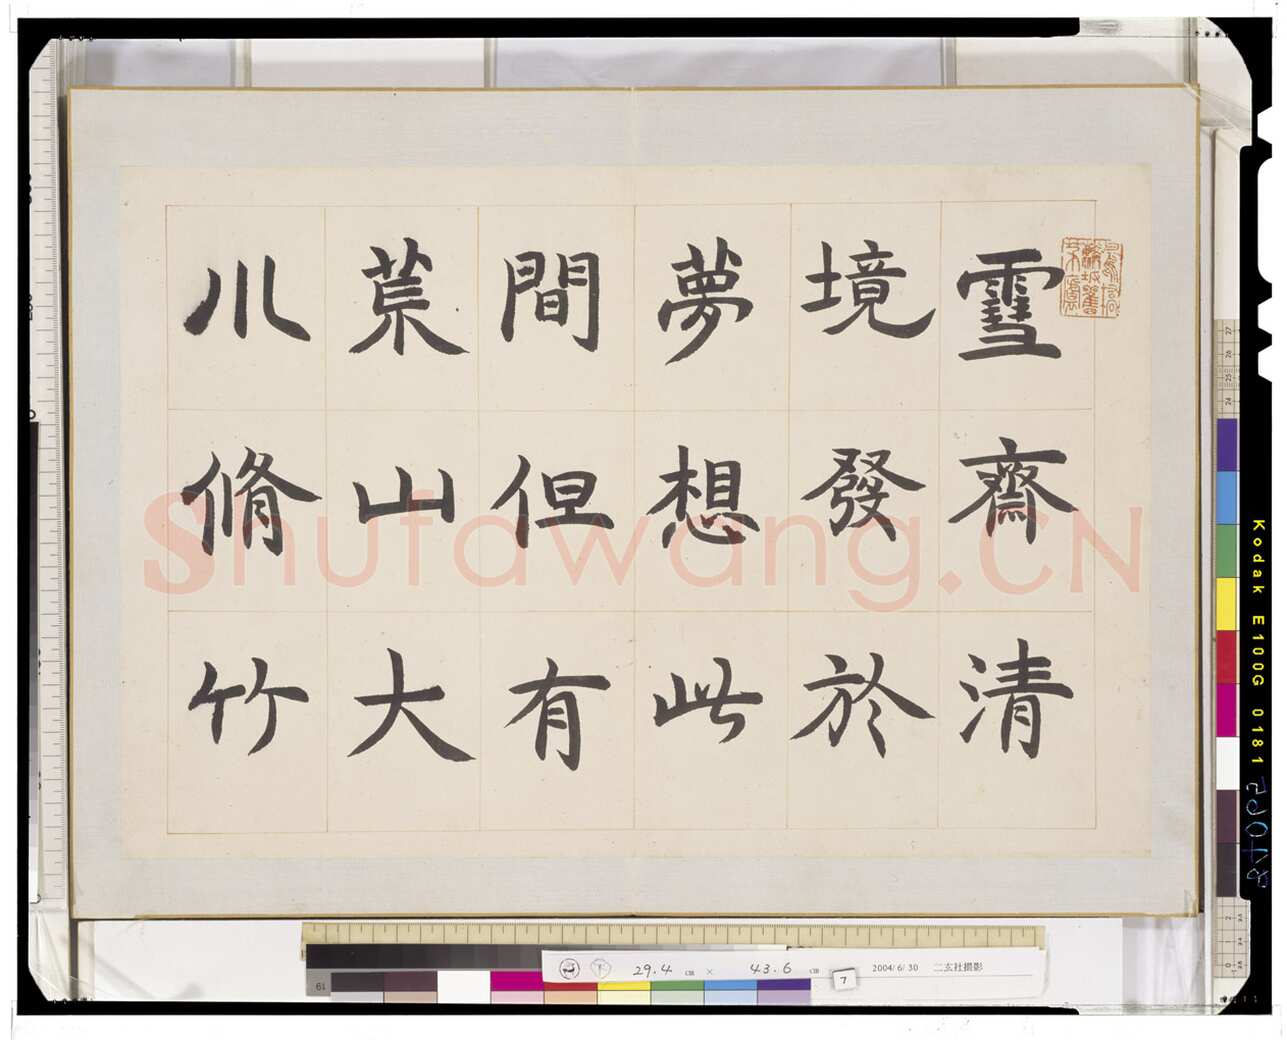 雪齋清
境發於
夢想此
間但有
荒山大
川脩竹
Shufawang.CN
Kodak E100G 0181
29.4 cm × 43.6 cm
2004/6/30 二玄社撮影
7
19
27
26
25
24